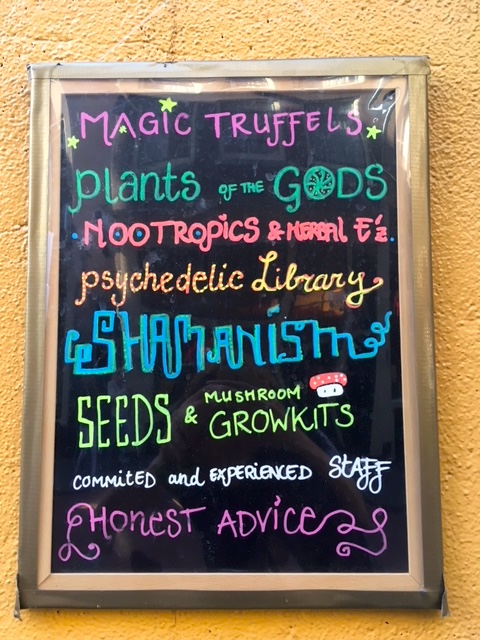 MAGIC TRUFFELS
plants OF THE GODS
NOOTROPICS & HERBAL E'z
psychedelic Library
SHAMANISM
SEEDS & MUSHROOM GROWKITS
COMMITED and EXPERIENCED STAFF
HONEST ADVICE